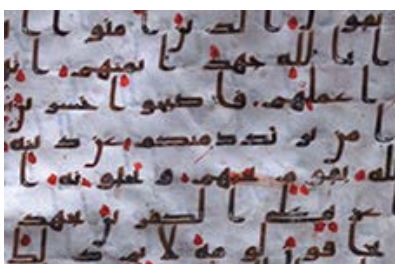 يقول ا لذ ين ا منوا ا
ا با لله جهد ا يمنهم ا نهم
ا عملهم فا صبحوا خسر ين
ا من ير تدد منكم عن د ينه
لله بقوم يحبهم و يحبو نه ا
عز ة على ا لكفر ين يجهد
يخا فو ن لو مة لا يم ذ لك